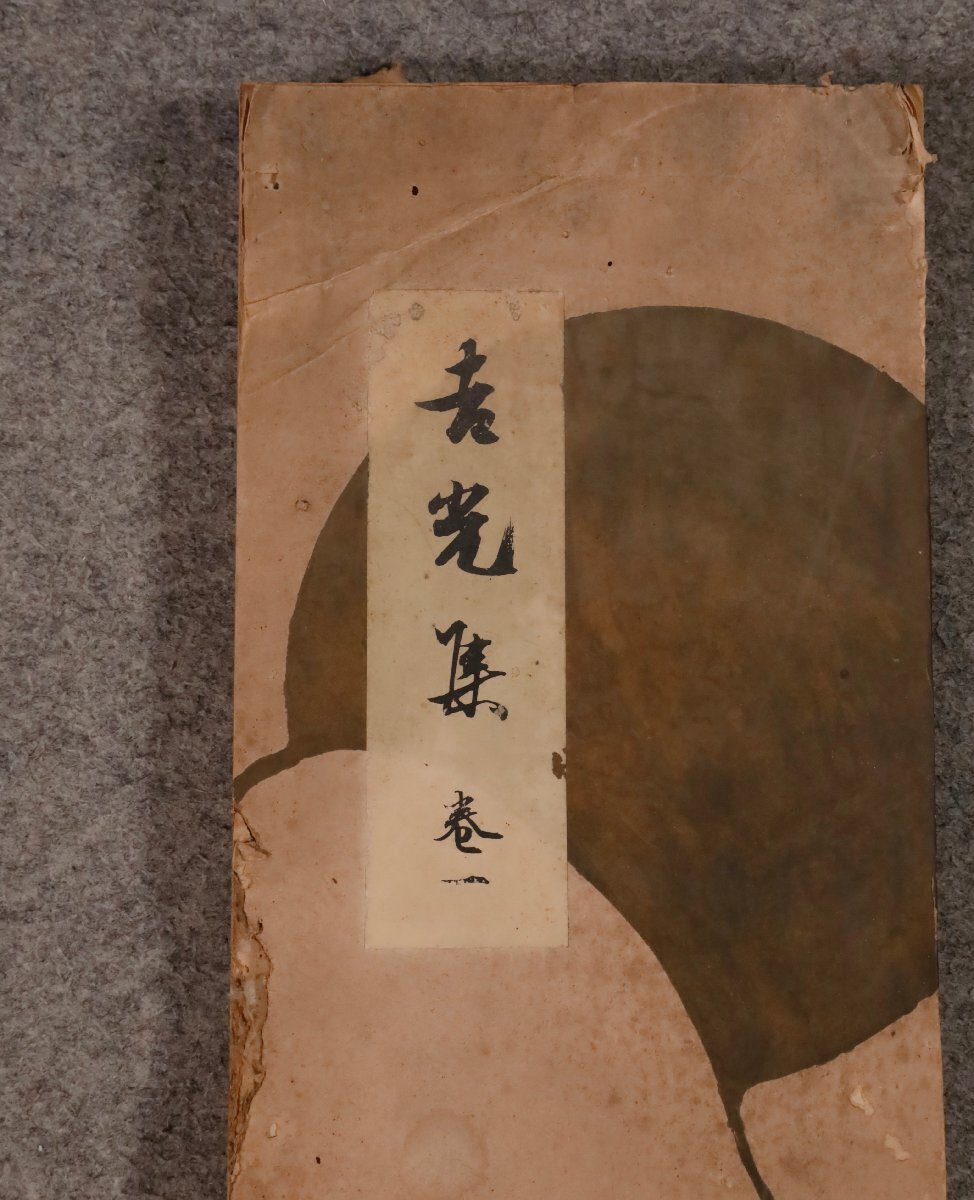 吉光集 卷一